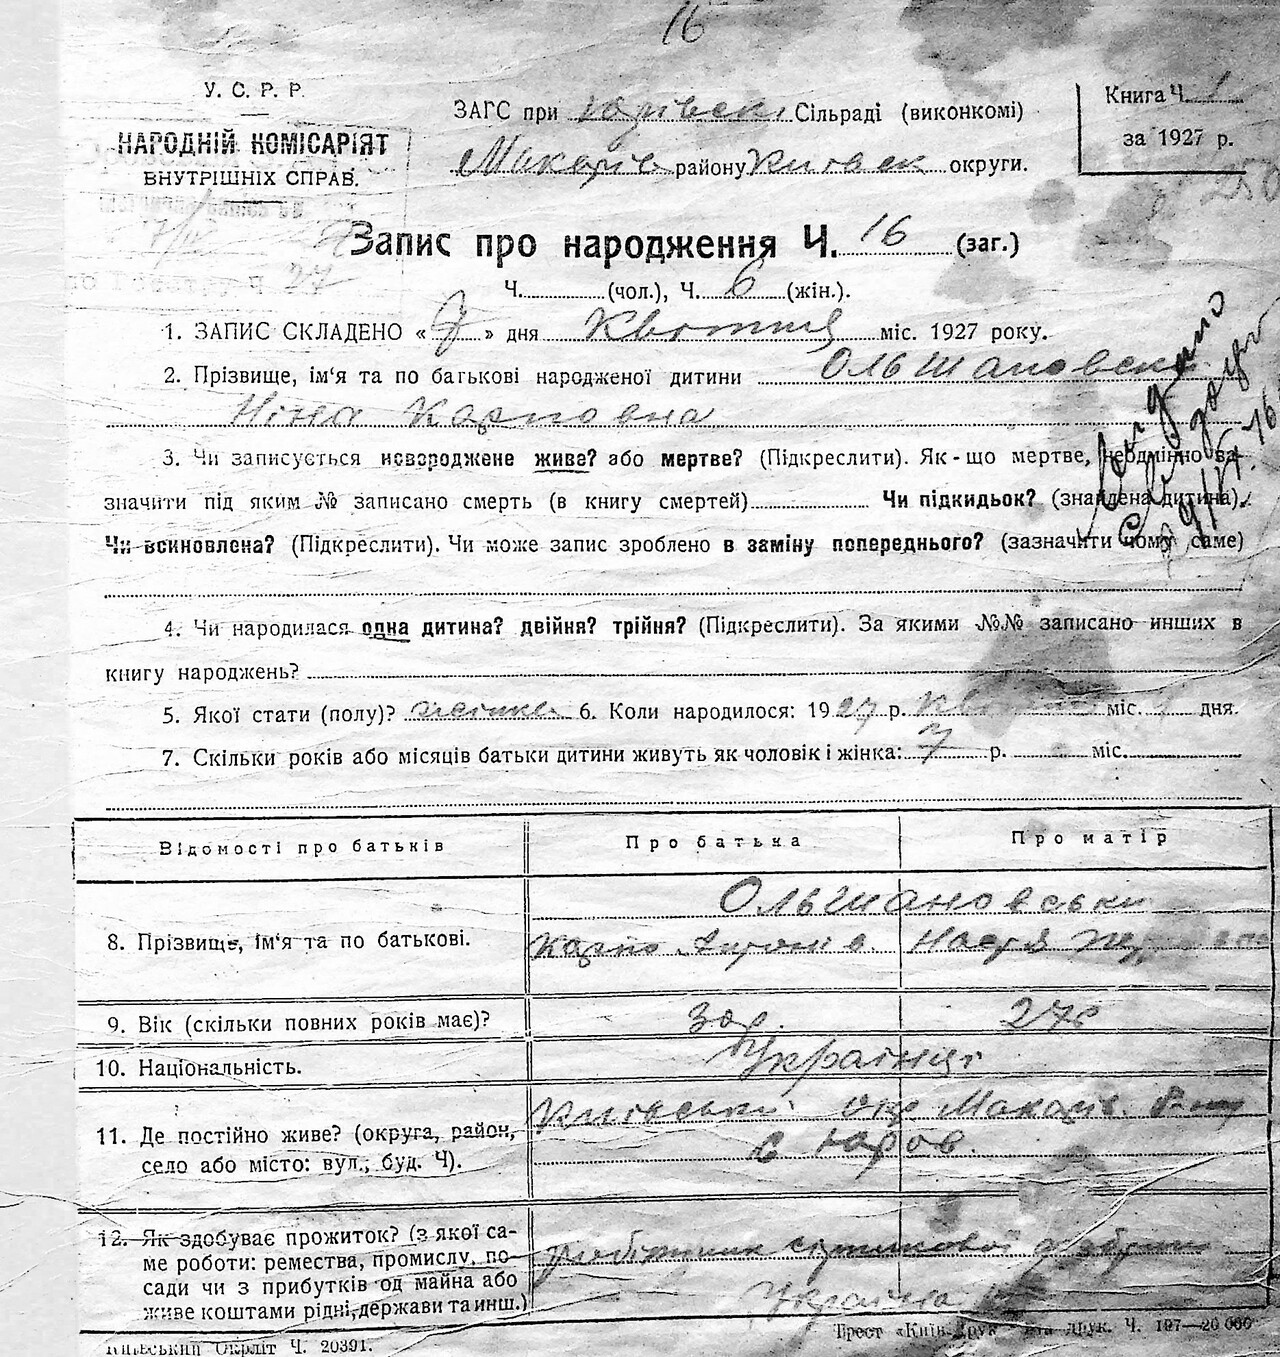 16
У. С. Р. Р.
НАРОДНІЙ КОМІСАРІЯТ
ВНУТРІШНІХ СПРАВ.
ЗАГС при Юрівскі Сільраді (виконкомі)
Макарів району Київськ округи.
Книга Ч. 1
за 1927 р.
250
Запис про народження Ч. 16 (заг.)
27
Ч. (чол.), Ч. 6 (жін.).
1. ЗАПИС СКЛАДЕНО « 7 » дня Квітня міс. 1927 року.
2. Прізвище, ім'я та по багькові народженої дитини Ольшановска
Ніна Карповна
3. Чи записується новороджене живе? або мертве? (Підкреслити). Як-що мертве, неодмінно за-
значити під яким № записано смерть (в книгу смертей) Чи підкидьок? (знайдена дитина).
Чи всиновлена? (Підкреслити). Чи може запис зроблено в заміну попереднього? (зазначити чому саме)
4. Чи народилася одна дитина? двійня? трійня? (Підкреслити). За якими №№ записано инших в
книгу народжень?
5. Якої стати (полу)? жіноча 6. Коли народилося: 1927 р. Квітня міс. 1 дня.
7. Скільки років або місяців батьки дитини живуть як чоловік і жінка: 7 р. міс.
Відомості про батьків
Про батька
Про матір
Ольшановськи
8. Прізвище, ім'я та по батькові.
Карпо Антонів. Настя
9. Вік (скільки повних років має)?
30р. 27р
10. Національність.
Українці
11. Де постійно живе? (округа, район,
село або місто: вул., буд. Ч).
Київськи. окр Макарів. р-ну
с Юров.
12. Як здобуває прожиток? (з якої са-
ме роботи: ремества, промислу, по-
сади чи з прибутків од майна або
живе коштами рідні, держави та инш.)
робітник сірникової фабрики
Українка
Київський Окрліт Ч. 20391.
Трест «Київ-Друк» Ч. 197—20 000